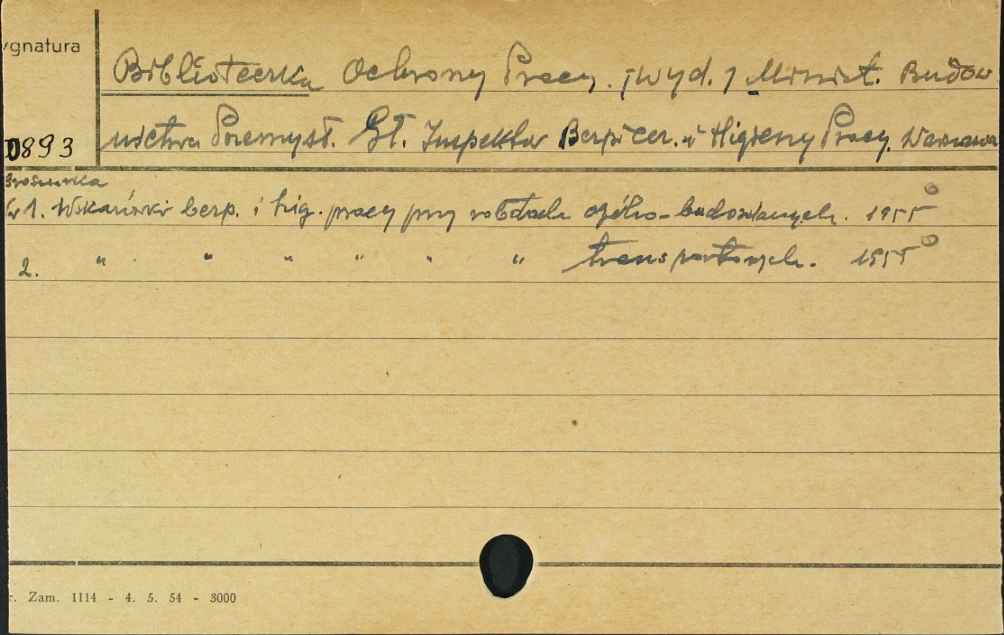 ygnatura
Biblioteczka Ochrony Pracy. [Wyd.] Minist. Budow
0893
nictwa Przemysł. Gł. Inspektor Bezpiecz. i Higieny Pracy. Warszawa
Broszurka
Nr 1. Wskazówki bezp. i hig. pracy przy robotach ogólno-budowlanych. 1955
2. " " " " " " transportowych. 1955
r. Zam. 1114 - 4. 5. 54 - 3000